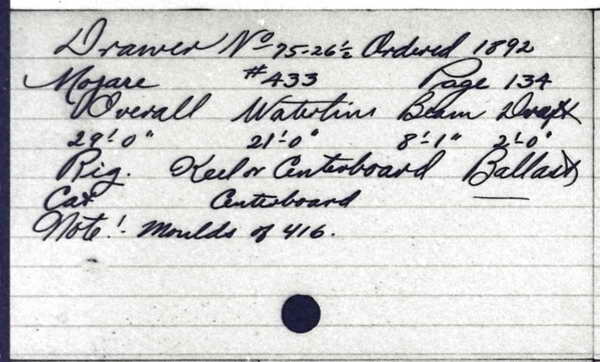 Drawer No 75-26½ Ordered 1892
Mojave #433 Page 134
Overall Waterline Beam Draft
29'-0" 21'-0" 8'-1" 2'-0"
Rig. Keel or Centerboard Ballast
Cat Centerboard —
Note! Moulds of 416.